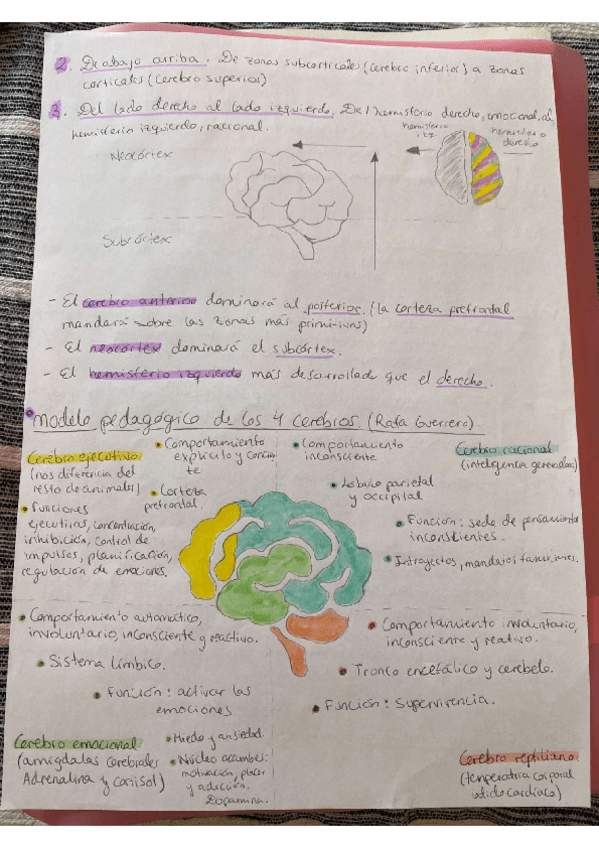 2. De abajo arriba. De zonas subcorticales (cerebro inferior) a zonas
corticales (cerebro superior)
3. Del lado derecho al lado izquierdo. Del hemisferio derecho, emocional, al
hemisferio izquierdo, racional.
hemisferio
izq.
hemisferio
derecho
Neocórtex
Subcórtex
- El cerebro anterior dominará al posterior. (la corteza prefrontal
mandará sobre las zonas más primitivas)
- El neocórtex dominará el subcórtex.
- El hemisferio izquierdo más desarrollado que el derecho.
Modelo pedagógico de los 4 cerebros (Rafa Guerrero)
Cerebro ejecutivo
(nos diferencia del
resto de animales)
• Funciones
ejecutivas, concentración,
inhibición, control de
impulsos, planificación,
regulación de emociones.
• Comportamiento
explícito y conscien
te
• Corteza
prefrontal
• Comportamiento
inconsciente
• Lóbulo parietal
y occipital
Cerebro racional
(inteligencia generadora)
• Función: sede de pensamientos
inconscientes.
• Introyectos, mandatos familiares.
• Comportamiento automático,
involuntario, inconsciente y reactivo.
• Sistema límbico.
• Función: activar las
emociones
Cerebro emocional
(amígdalas cerebrales
Adrenalina y cortisol)
• Miedo y ansiedad.
• Núcleo accumbens:
motivación, placer
y adicción.
Dopamina.
• Comportamiento involuntario,
inconsciente y reativo.
• Tronco encefálico y cerebelo.
• Función: Supervivencia.
Cerebro reptiliano
(temperatura corporal
latido cardíaco)